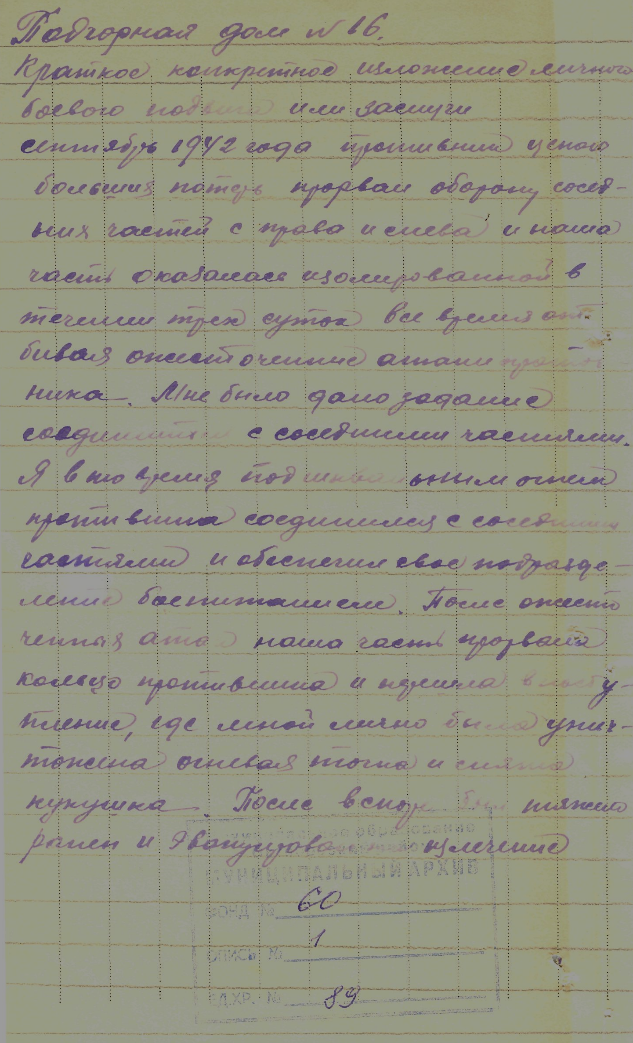 Подгорная дом № 16.
Краткое конкретное изложение личного
боевого подвига или заслуги
сентябрь 1942 года противник ценою
больших потерь прорвал оборону сосед-
них частей с права и слева и наша
часть оказалась изолированной в
течении трех суток все время от-
бивая ожесточенные атаки против
ника. Мне было дано задание
соединиться с соседними частями.
Я в то время под шквальным огнем
противника соединился с соседними
частями и обеспечил свое подразде-
ление боепитанием. После ожесто
ченных атак наша часть прорвала
кольцо противника и перешла в насту-
пление, где мной лично была унич-
тожена огневая точка и снята
кукушка. После был тяжело
ранен и эвакуирован излечение
МУНИЦИПАЛЬНЫЙ АРХИВ
ФОНД № 60
ОПИСЬ № 1
ЕД.ХР. № 89